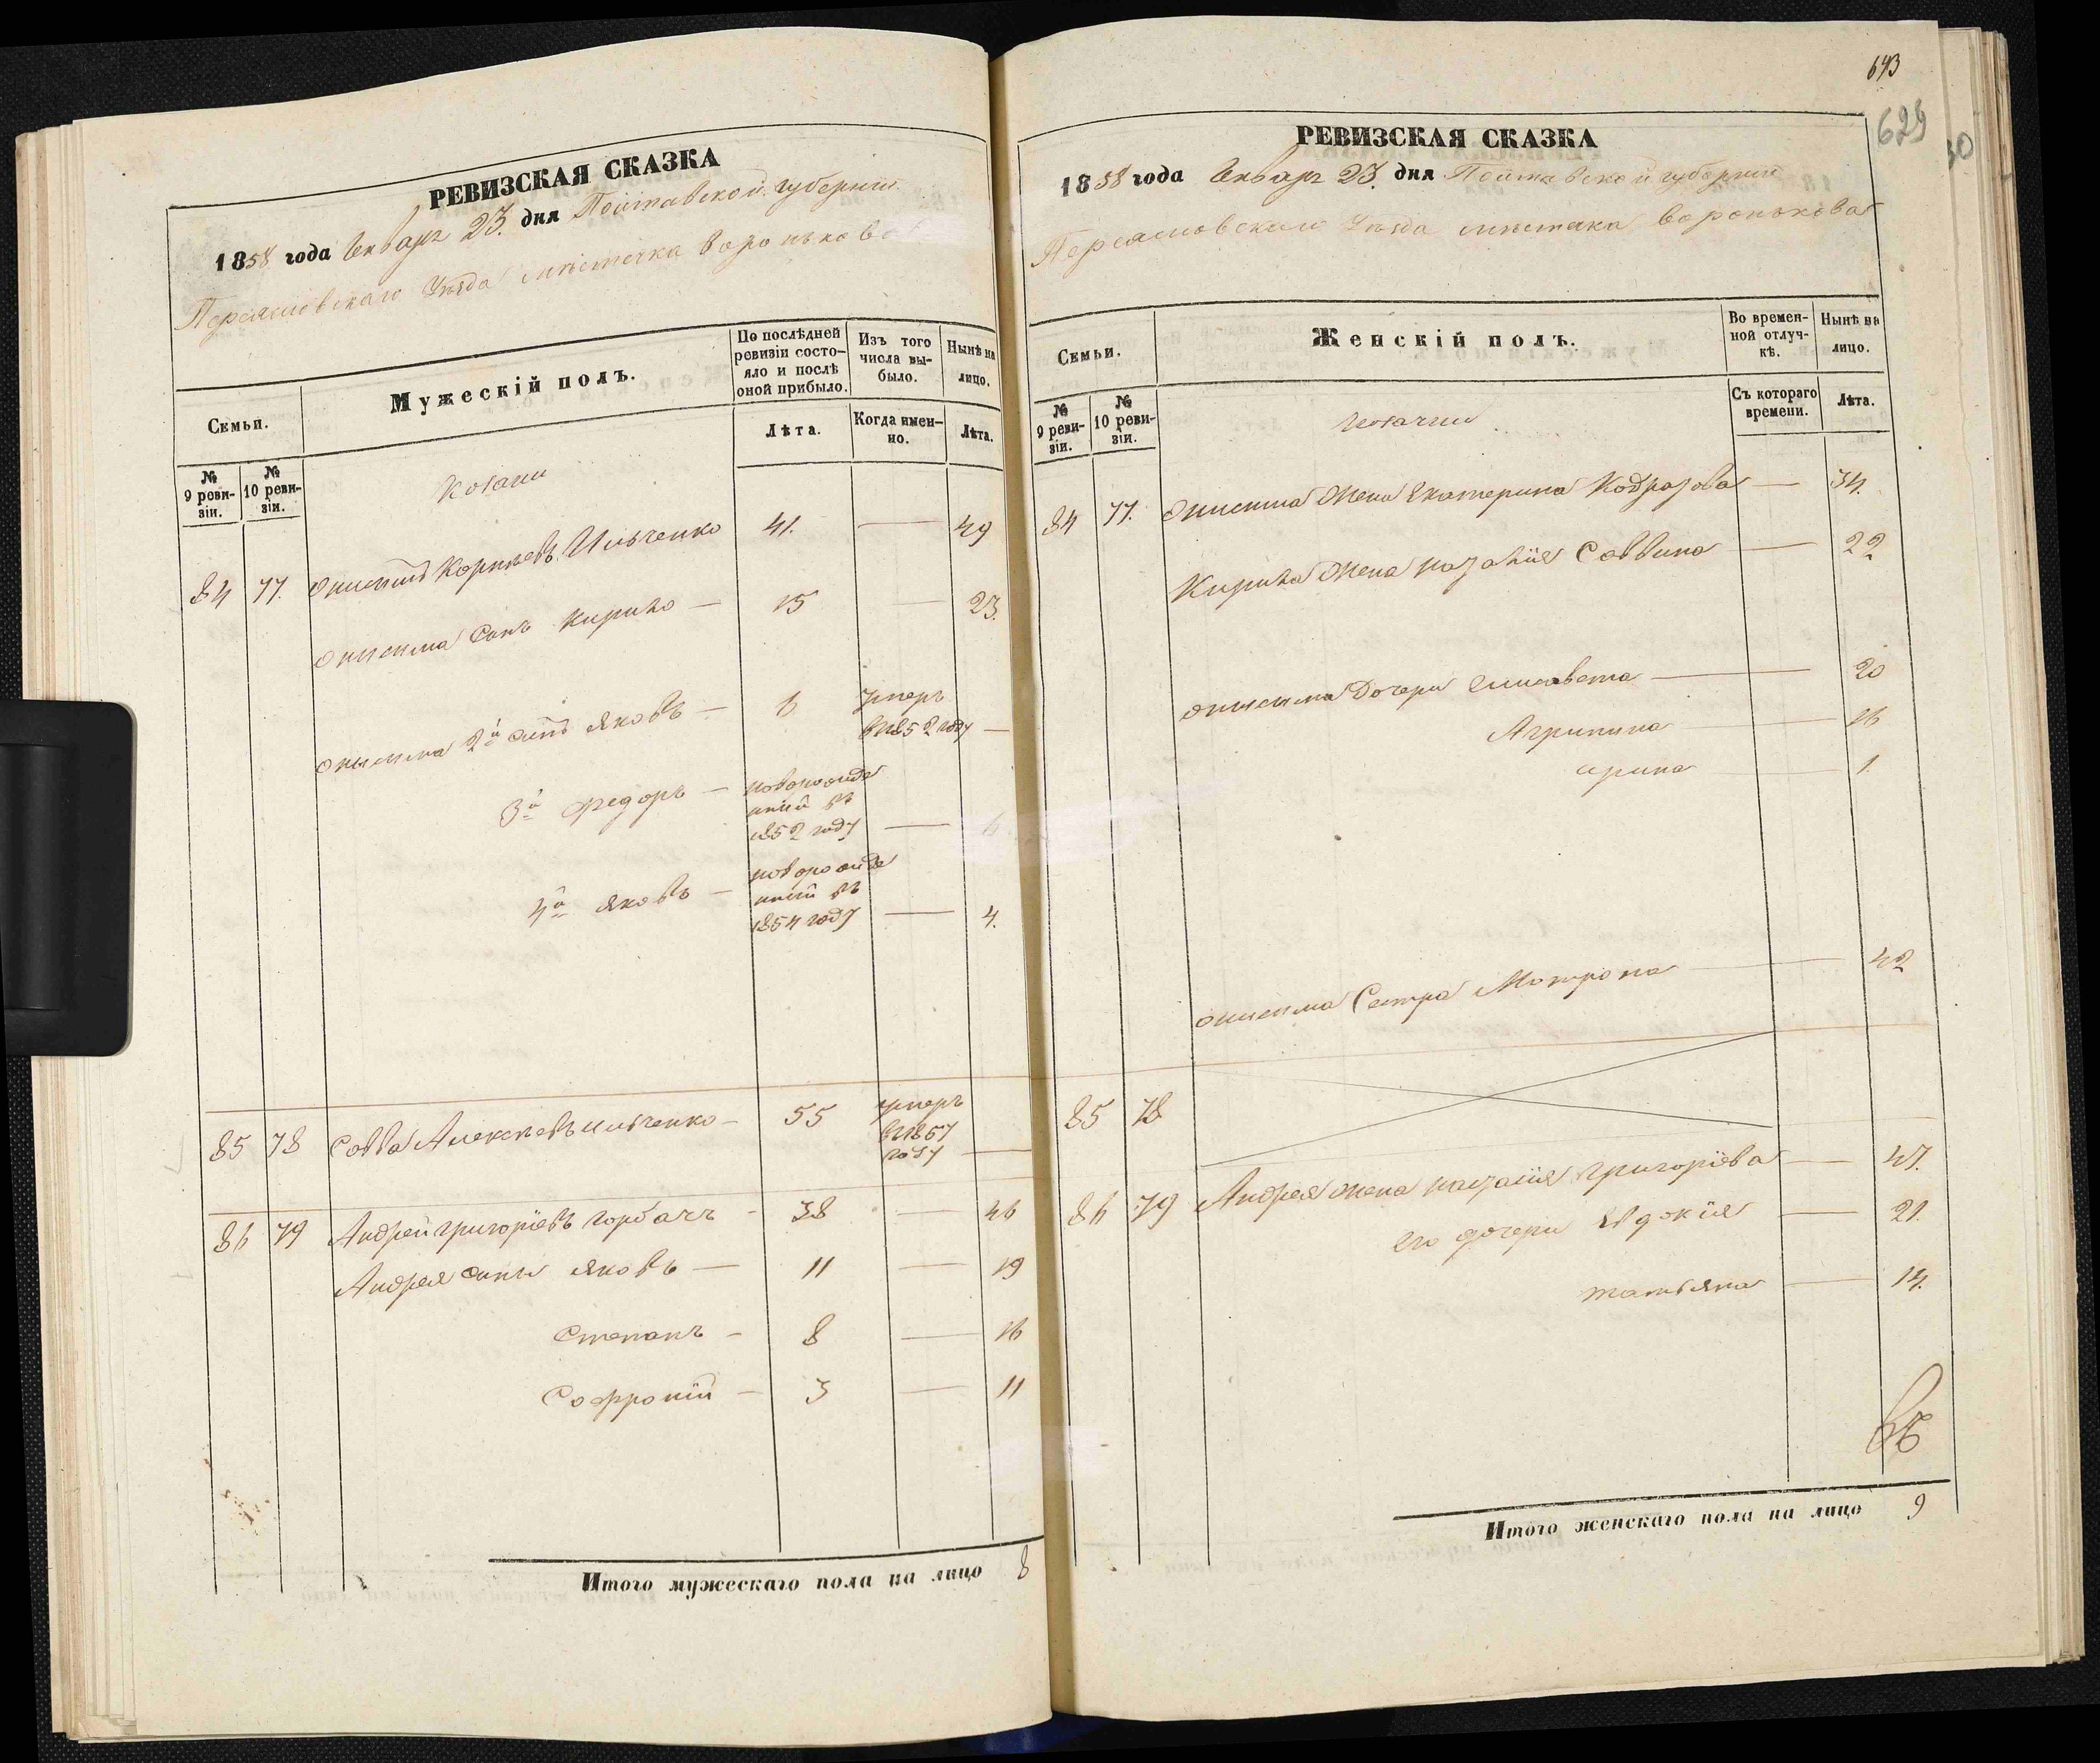 РЕВИЗСКАЯ СКАЗКА
1858 года Генваря 23. дня Полтавской губернии
Переяславскаго Уезда местечка Воронькова
Семьи.
Мужескій полъ.
По послѣдней ревизіи состо-
яло и послѣ
оной прибыло.
Изъ того
числа вы-
было.
Нынѣ на
лицо.
№
9 реви-
зіи.
№
10 реви-
зіи.
Лѣта.
Когда имен-
но.
Лѣта.
Козаки
84 77. Онисимъ Корнѣевъ Ильченко 41. — 49
Онисима Сынъ Кирило — 15 — 23.
Онисима 2й сынъ Яковъ — 6 умеръ
в 1852 году —
3й Федоръ — новорожде
нный въ
1852 году — 6
4й Яковъ — новорожде
нный въ
1854 году — 4.
85 78 Савва Алексѣевъ Ильченко — 55 умеръ
в 1857
году —
86 79 Андрей Григоріевъ Горбачъ — 38 — 46
Андрея сыны Яковъ — 11 — 19
Степанъ — 8 — 16
Софроній — 3 — 11
Итого мужескаго пола на лицо 8
643
629
30
РЕВИЗСКАЯ СКАЗКА
1858 года Генваря 23. дня Полтавской губернии
Переясловскаго Уезда местечка Воронькова
Семьи.
Женскій полъ.
Во времен-
ной отлуч-
кѣ.
Нынѣ на
лицо.
№
9 реви-
зіи.
№
10 реви-
зіи.
Съ котораго
времени.
Лѣта.
Козачки
84 77. Онисима Жена Екатерина Кодратова — 34.
Кирила Жена Наталія Саввина — 22
Онисима Дочери Елисавета — 20
Агрипина — 16
Ирина — 1.
Онисима Сестра Мотрона — 42
85 78
86 79 Андрея жена Настасія Григоріева — 47.
Его дочери Евдокія — 21.
Татьяна — 14.
Итого женскаго пола на лицо 9